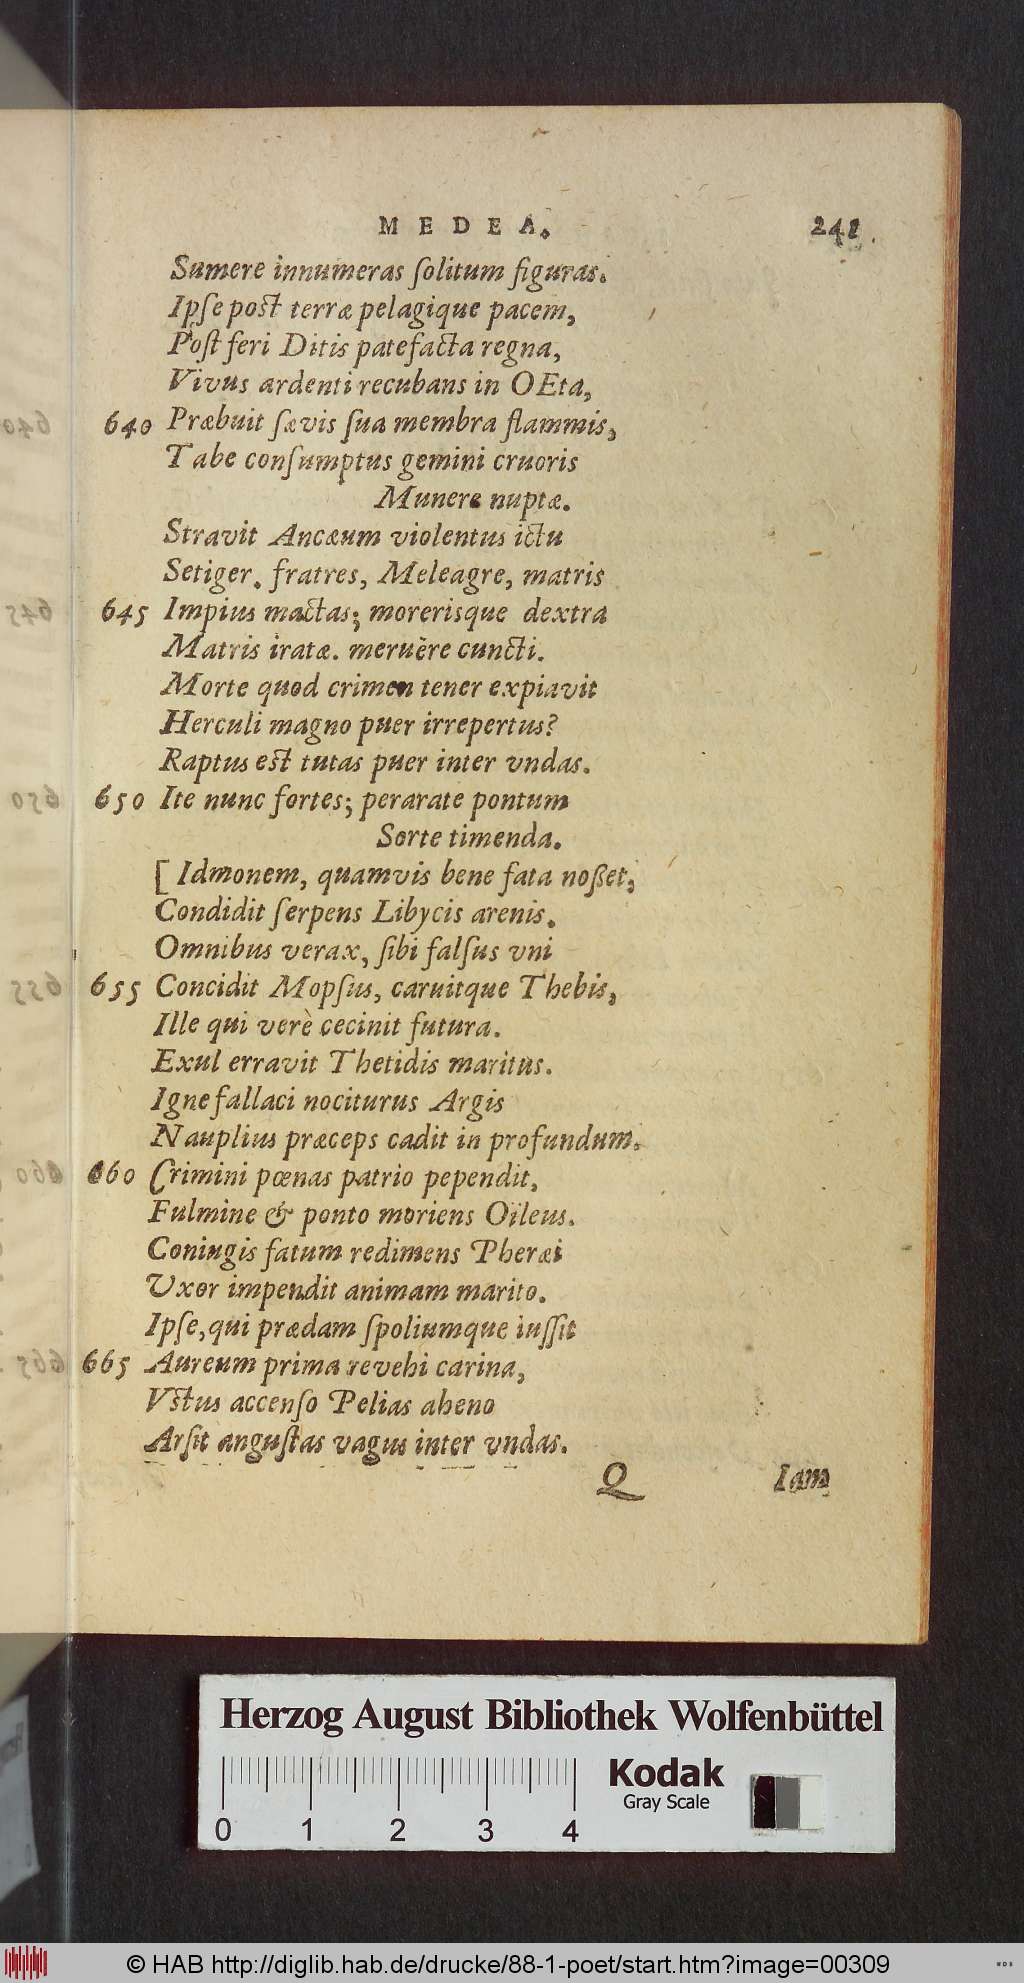 MEDEA. 241
Sumere innumeras ſolitum figuras.
Ipſe poſt terræ pelagique pacem,
Poſt feri Ditis patefacta regna,
Vivus ardenti recubans in OEta,
640 Præbuit ſævis ſua membra flammis,
Tabe conſumptus gemini cruoris
Munere nuptæ.
Stravit Ancæum violentus ictu
Setiger. fratres, Meleagre, matris
645 Impius mactas; morerisque dextra
Matris iratæ. meruère cuncti.
Morte quod crimen tener expiavit
Herculi magno puer irrepertus?
Raptus eſt tutas puer inter vndas.
650 Ite nunc fortes; perarate pontum
Sorte timenda.
[ Idmonem, quamvis bene fata noßet,
Condidit ſerpens Libycis arenis.
Omnibus verax, ſibi falſus vni
655 Concidit Mopſus, caruitque Thebis,
Ille qui verè cecinit futura.
Exul erravit Thetidis maritus.
Igne fallaci nociturus Argis
Nauplius præceps cadit in profundum.
660 Crimini pœnas patrio pependit,
Fulmine & ponto moriens Oïleus.
Coniugis fatum redimens Pheræi
Vxor impendit animam marito.
Ipſe, qui prædam ſpoliumque iuſſit
665 Aureum prima revehi carina,
Vſtus accenſo Pelias aheno
Arſit anguſtas vagus inter vndas.
Q Iam
Herzog August Bibliothek Wolfenbüttel
Kodak
Gray Scale
0 1 2 3 4
© HAB http://diglib.hab.de/drucke/88-1-poet/start.htm?image=00309